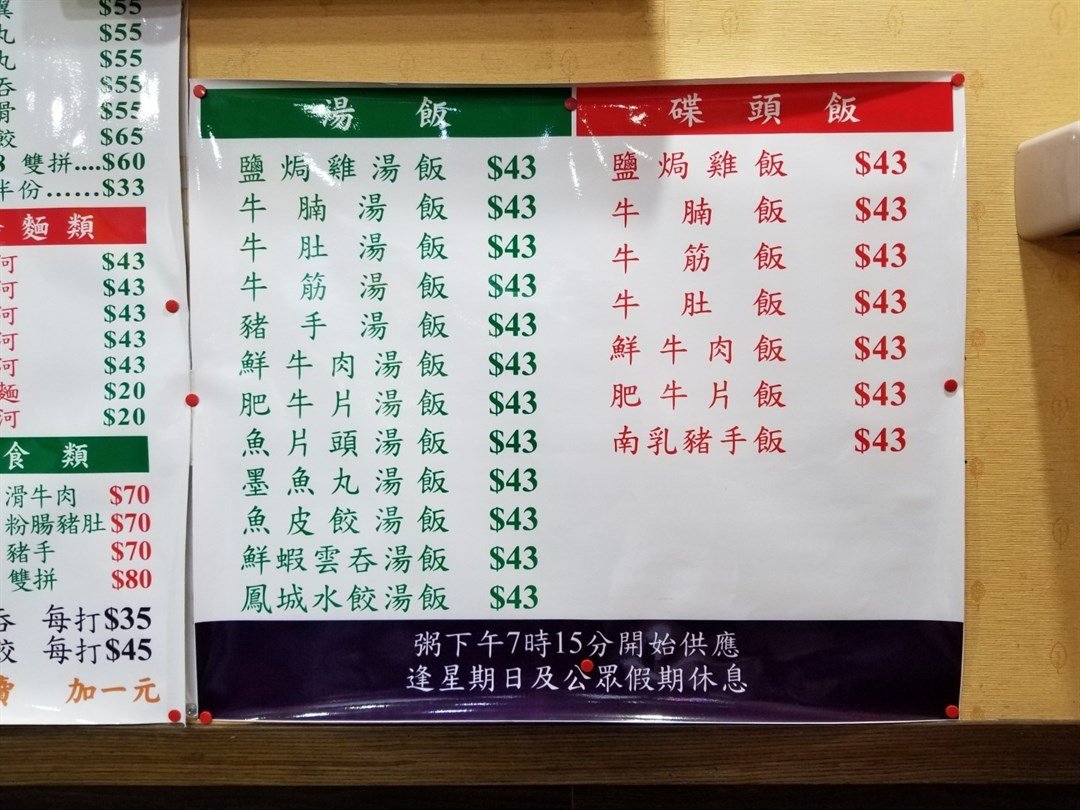 $55
丸 $55
丸 $55
吞 $55
滑 $55
餃 $65
雙拼....$60
半份......$33
麵類
河 $43
河 $43
河 $43
河 $43
河 $43
麵 $20
河 $20
食類
滑牛肉 $70
粉腸豬肚 $70
豬手 $70
雙拼 $80
吞 每打$35
餃 每打$45
加一元
湯飯
鹽焗雞湯飯 $43
牛腩湯飯 $43
牛肚湯飯 $43
牛筋湯飯 $43
豬手湯飯 $43
鮮牛肉湯飯 $43
肥牛片湯飯 $43
魚片頭湯飯 $43
墨魚丸湯飯 $43
魚皮餃湯飯 $43
鮮蝦雲吞湯飯 $43
鳳城水餃湯飯 $43
碟頭飯
鹽焗雞飯 $43
牛腩飯 $43
牛筋飯 $43
牛肚飯 $43
鮮牛肉飯 $43
肥牛片飯 $43
南乳豬手飯 $43
粥下午7時15分開始供應
逢星期日及公眾假期休息